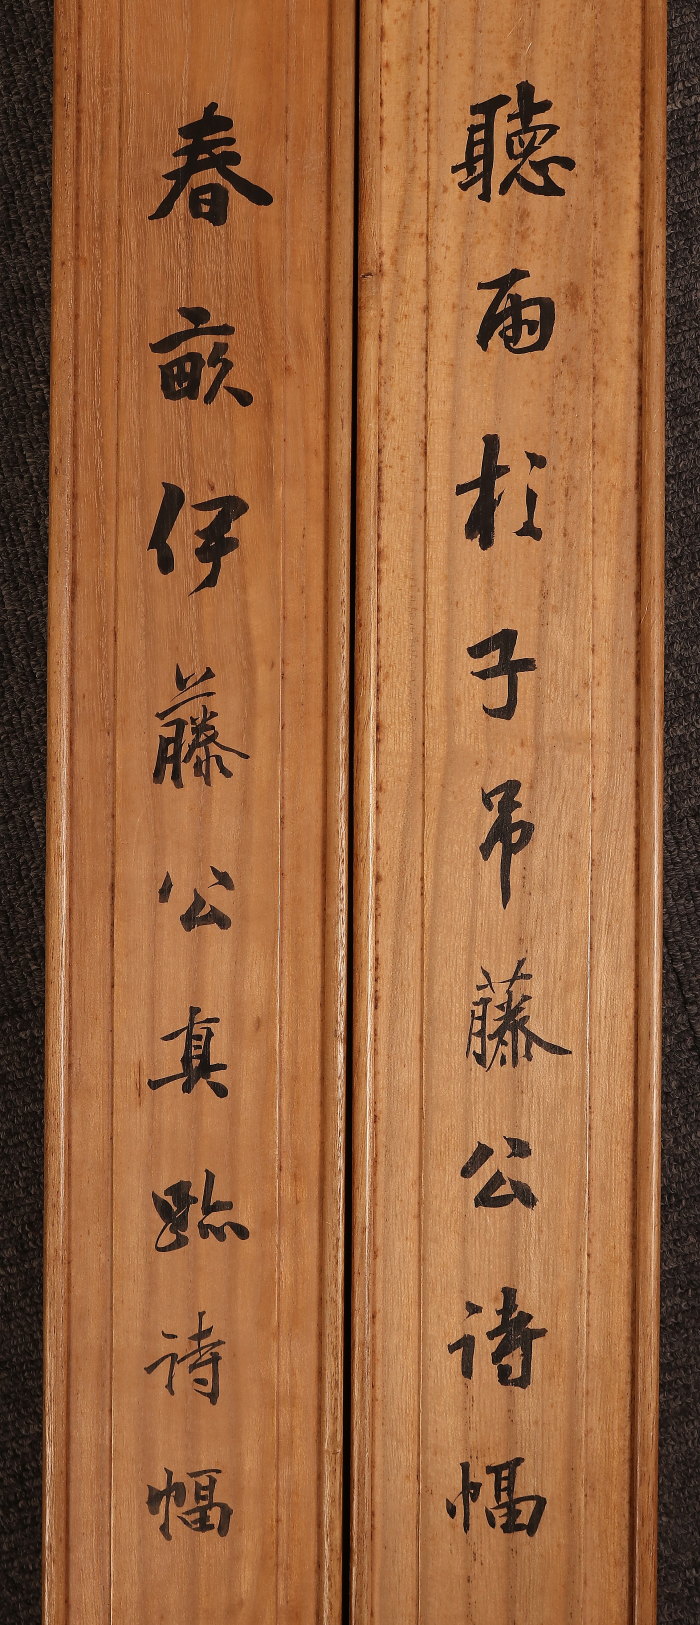 聴雨杉子吊藤公詩幅
春畝伊藤公真跡詩幅